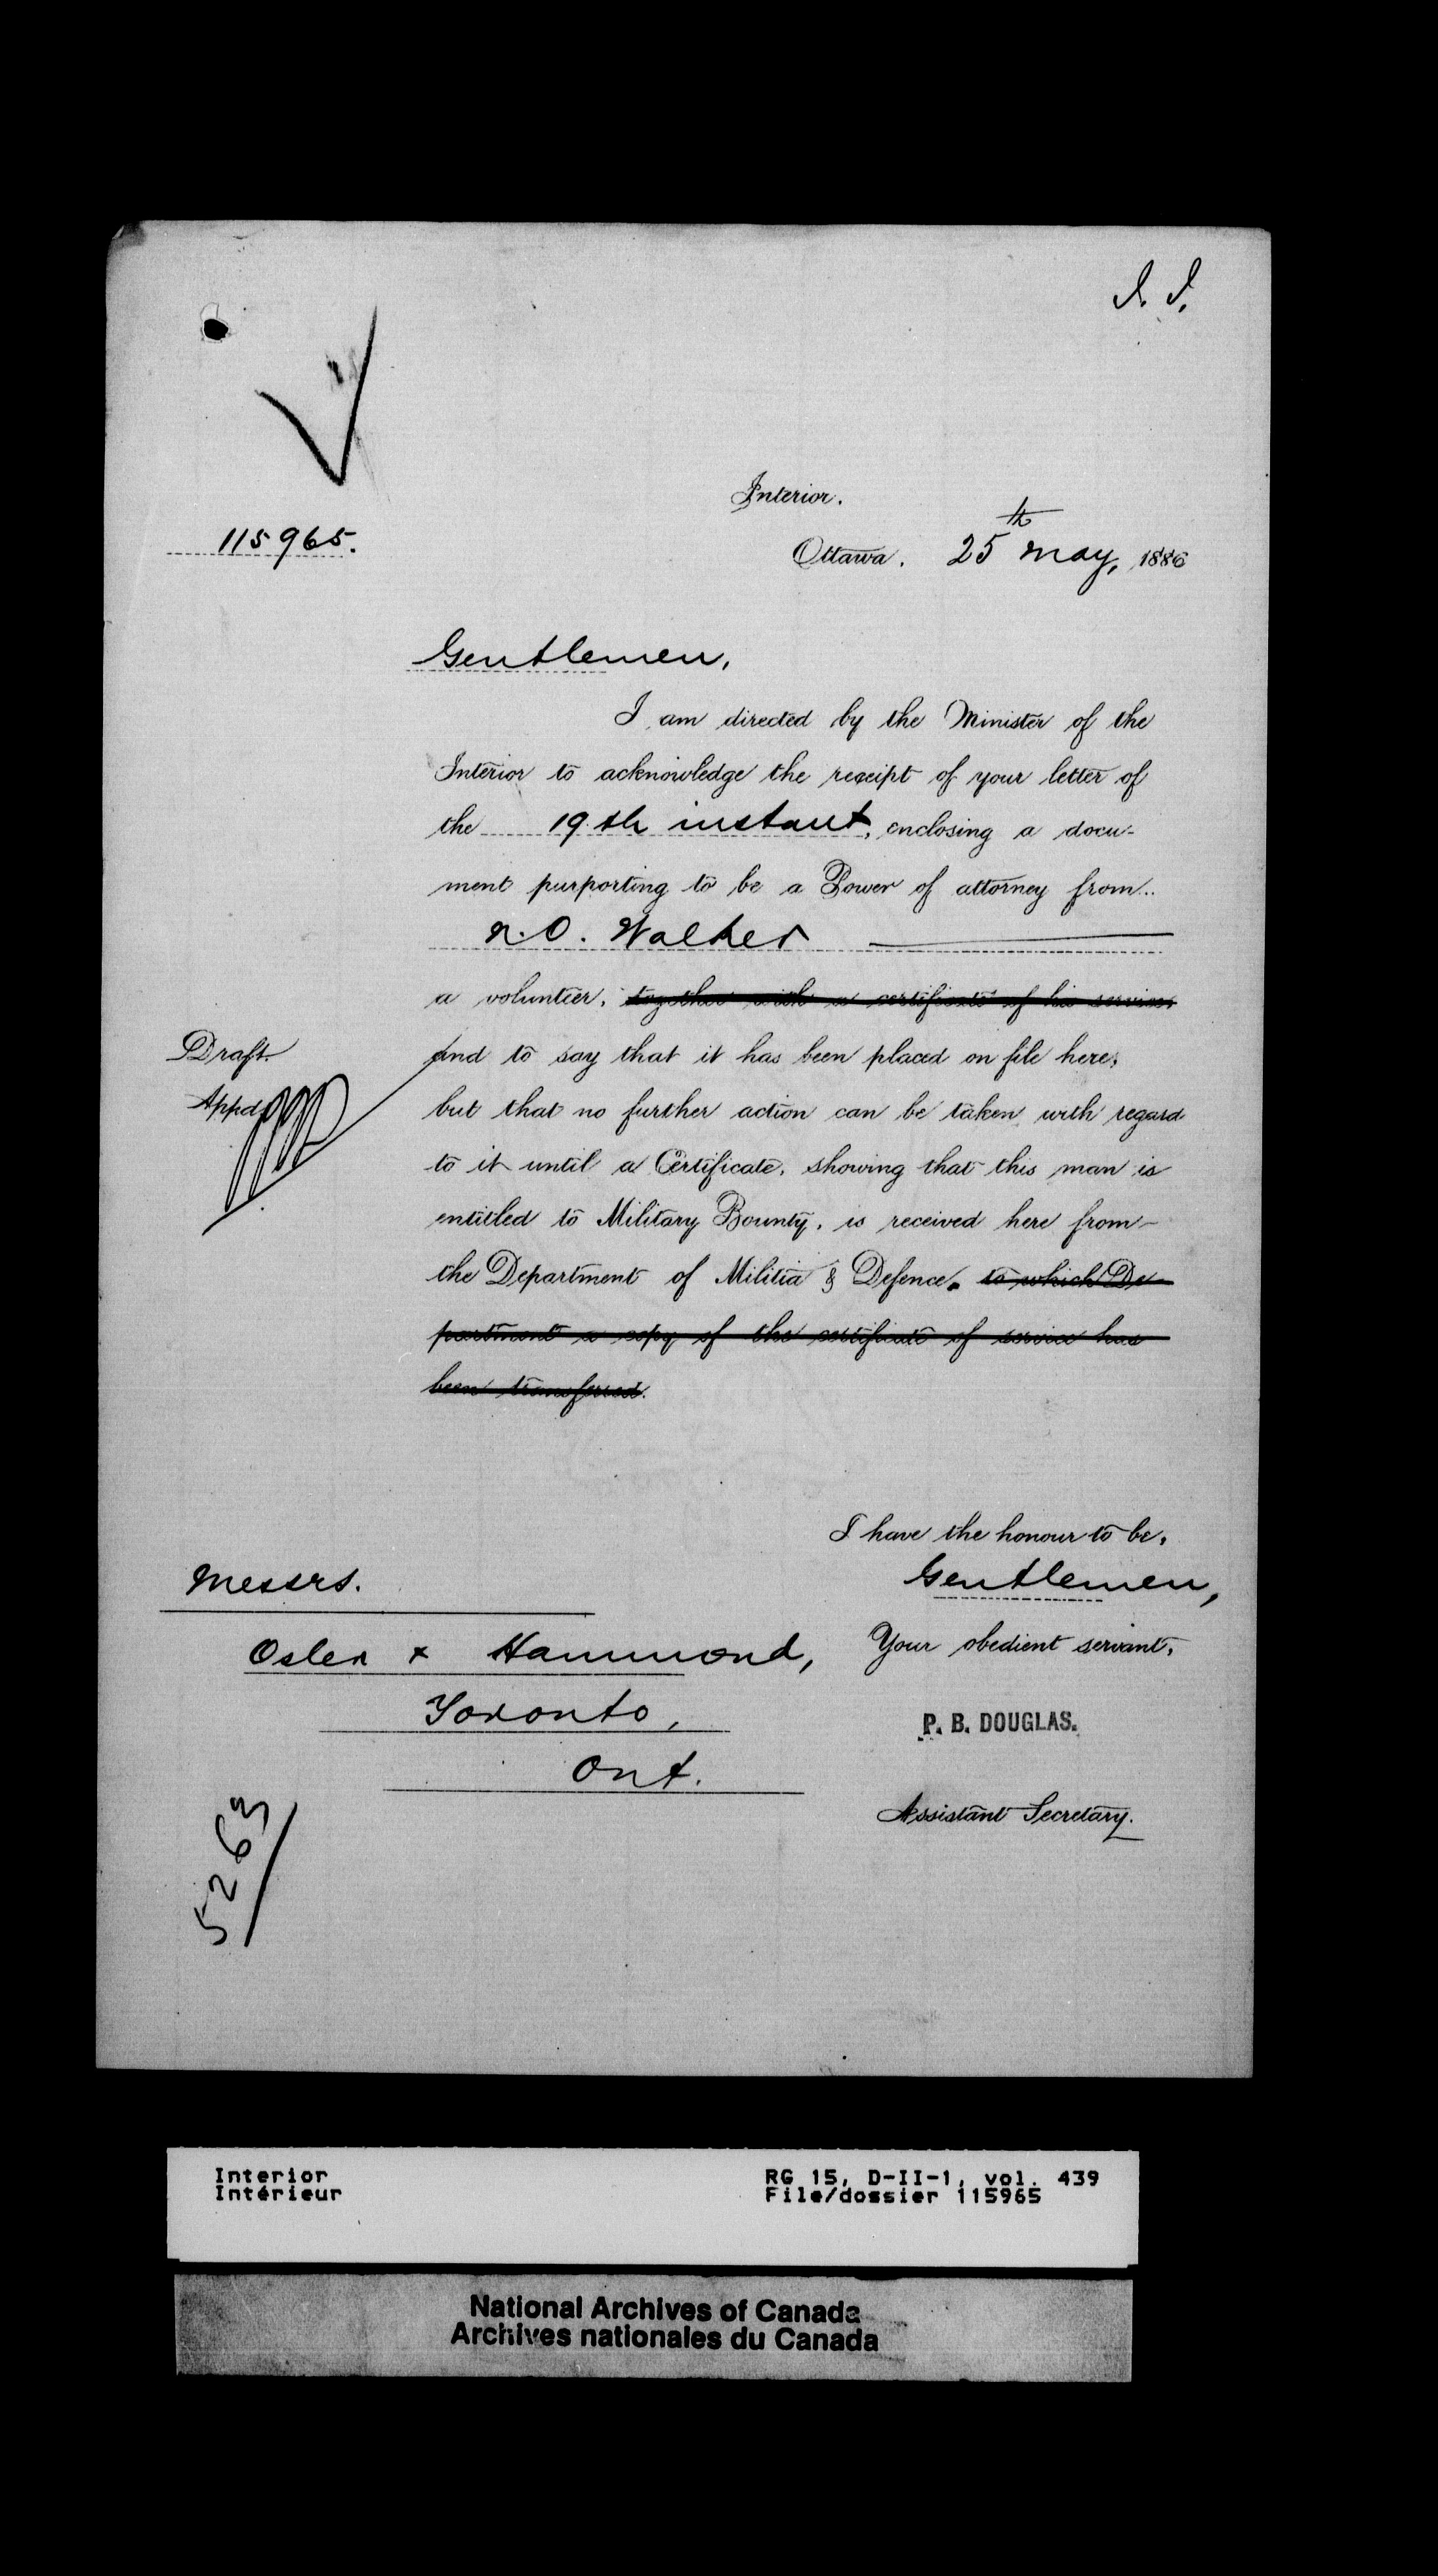 I. I.
Interior.
115965.
Ottawa. 25th May, 1886
Gentlemen,
I am directed by the Minister of the
Interior to acknowledge the receipt of your letter of
the 19th instant, enclosing a docu-
ment purporting to be a Power of attorney from..
N. O. Walker
a volunteer, together with a certificate of his services
and to say that it has been placed on file here,
Draft.
Appd.
but that no further action can be taken with regard
to it until a Certificate, showing that this man is
entitled to Military Bounty, is received here from
the Department of Militia & Defence. to which De-
partment a copy of the certificate of service has
been transferred.
I have the honour to be,
Gentlemen,
Your obedient servant,
P. B. DOUGLAS.
Assistant Secretary.
Messrs.
Osler & Hammond,
Toronto,
Ont.
5263
Interior
Intérieur
RG 15, D-II-1, vol. 439
File/dossier 115965
National Archives of Canada
Archives nationales du Canada